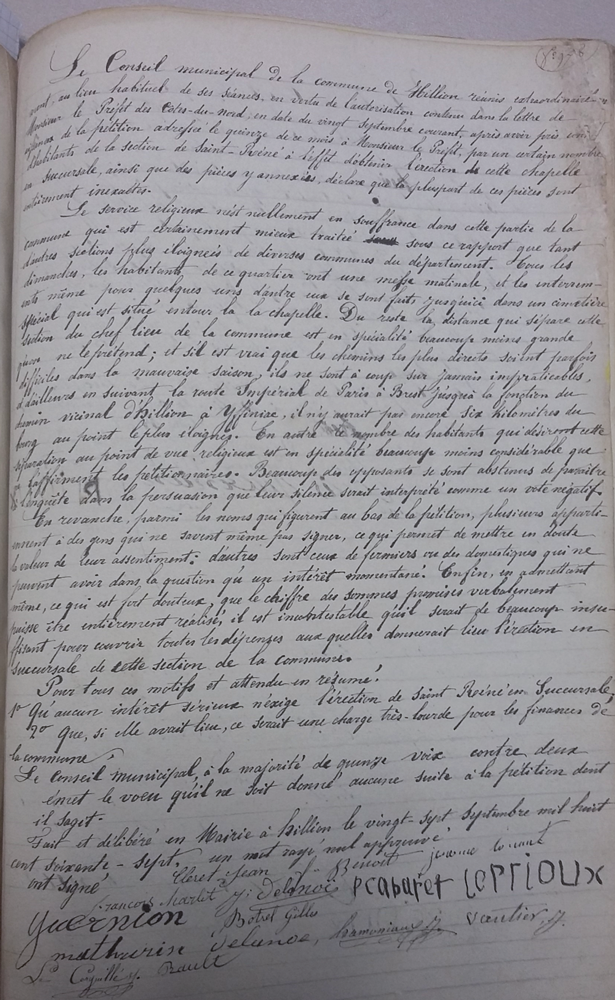 Le Conseil municipal de la commune de Hillion réunis extraordinaire-
ment, au lieu habituel de ses séances, en vertu de l'autorisation contenue dans la lettre de
Monsieur le Préfet des Côtes-du-nord, en date du vingt septembre courant, après avoir pris
de la pétition adressée le quinze de ce mois à Monsieur le Préfet, par un certain nombre
d'habitants de la section de Saint-Réné à l'effet d'obtenir l'érection de cette chapelle
en succursale, ainsi que des pièces y annexées, déclare que la pluspart de ces pièces sont
entièrement inexactes.
Le service religieux n'est nullement en souffrance dans cette partie de la
commune qui est certainement mieux traitée sous ce rapport que tant
d'autres sections plus éloignées de diverses communes du département. Tous les
dimanches, les habitants de ce quartier ont une messe matinale, et les interrem-
ents même pour quelques uns d'antre eux se sont faits jusqu'ici dans un cimetière
spécial qui est situé entour la la chapelle. Du reste la distance qui sépare cette
section du chef lieu de la commune est en spécialité beaucoup moins grande
qu'on ne le prétend; et s'il est vrai que les chemins les plus directs soient parfois
difficiles dans la mauvaise saison, ils ne sont à coup sur jamais impraticables,
d'ailleurs en suivant la route Impérial de Paris à Brest jusqu'à la fonction du
chemin vicinal d'Hillion à Yffiniac, il n'y aurait pas encore six kilomètres du
bourg au point le plus éloigné. En outre le nombre des habitants qui désirent cette
séparation au point de vue religieux est en spécialité beaucoup moins considérable que
l'affirment les pétitionnaires. Beaucoup des opposants se sont abstenus de paraître
à l'enquête dans la persuasion que leur silence serait interprété comme un vote négatif.
En revanche, parmi les noms qui figurent au bas de la pétition, plusieurs apparti-
ennent à des gens qui ne savent même pas signer, ce qui permet de mettre en doute
la valeur de leur assentiment; d'autres sont ceux de fermiers ou des domestiques qui ne
peuvent avoir dans la question qu'un intérêt momentané. Enfin, en admettant
même, ce qui est fort douteux, que le chiffre des sommes promises verbalement
puisse être entièrement réalisé, il est incontestable qu'il serait de beaucoup insu-
ffisant pour couvrir toutes les dépenses aux quelles donnerait lieu l'érection en
succursale de cette section de la commune.
Pour tous ces motifs et attendu en résumé!
1º Qu'aucun intérêt sérieux n'exige l'érection de Saint Réné en Succursale,
2º Que, si elle avait lieu, ce serait une charge très-lourde pour les finances de
la commune
Le Conseil municipal, à la majorité de quinze voix contre deux
émet le voeu qu'il ne soit donné aucune suite à la pétition dont
il s'agit.
Fait et délibéré en Mairie à Hillion le vingt-sept septembre mil huit
cent soixante-sept, un mot rayé nul approuvé
ont signé
Cleret jean Benoit
francois Marlet Delanoë P Cabaret LEPRIOUX
Guernion Botrel Gilles
mathurin Delanoë, Gautier
Rault